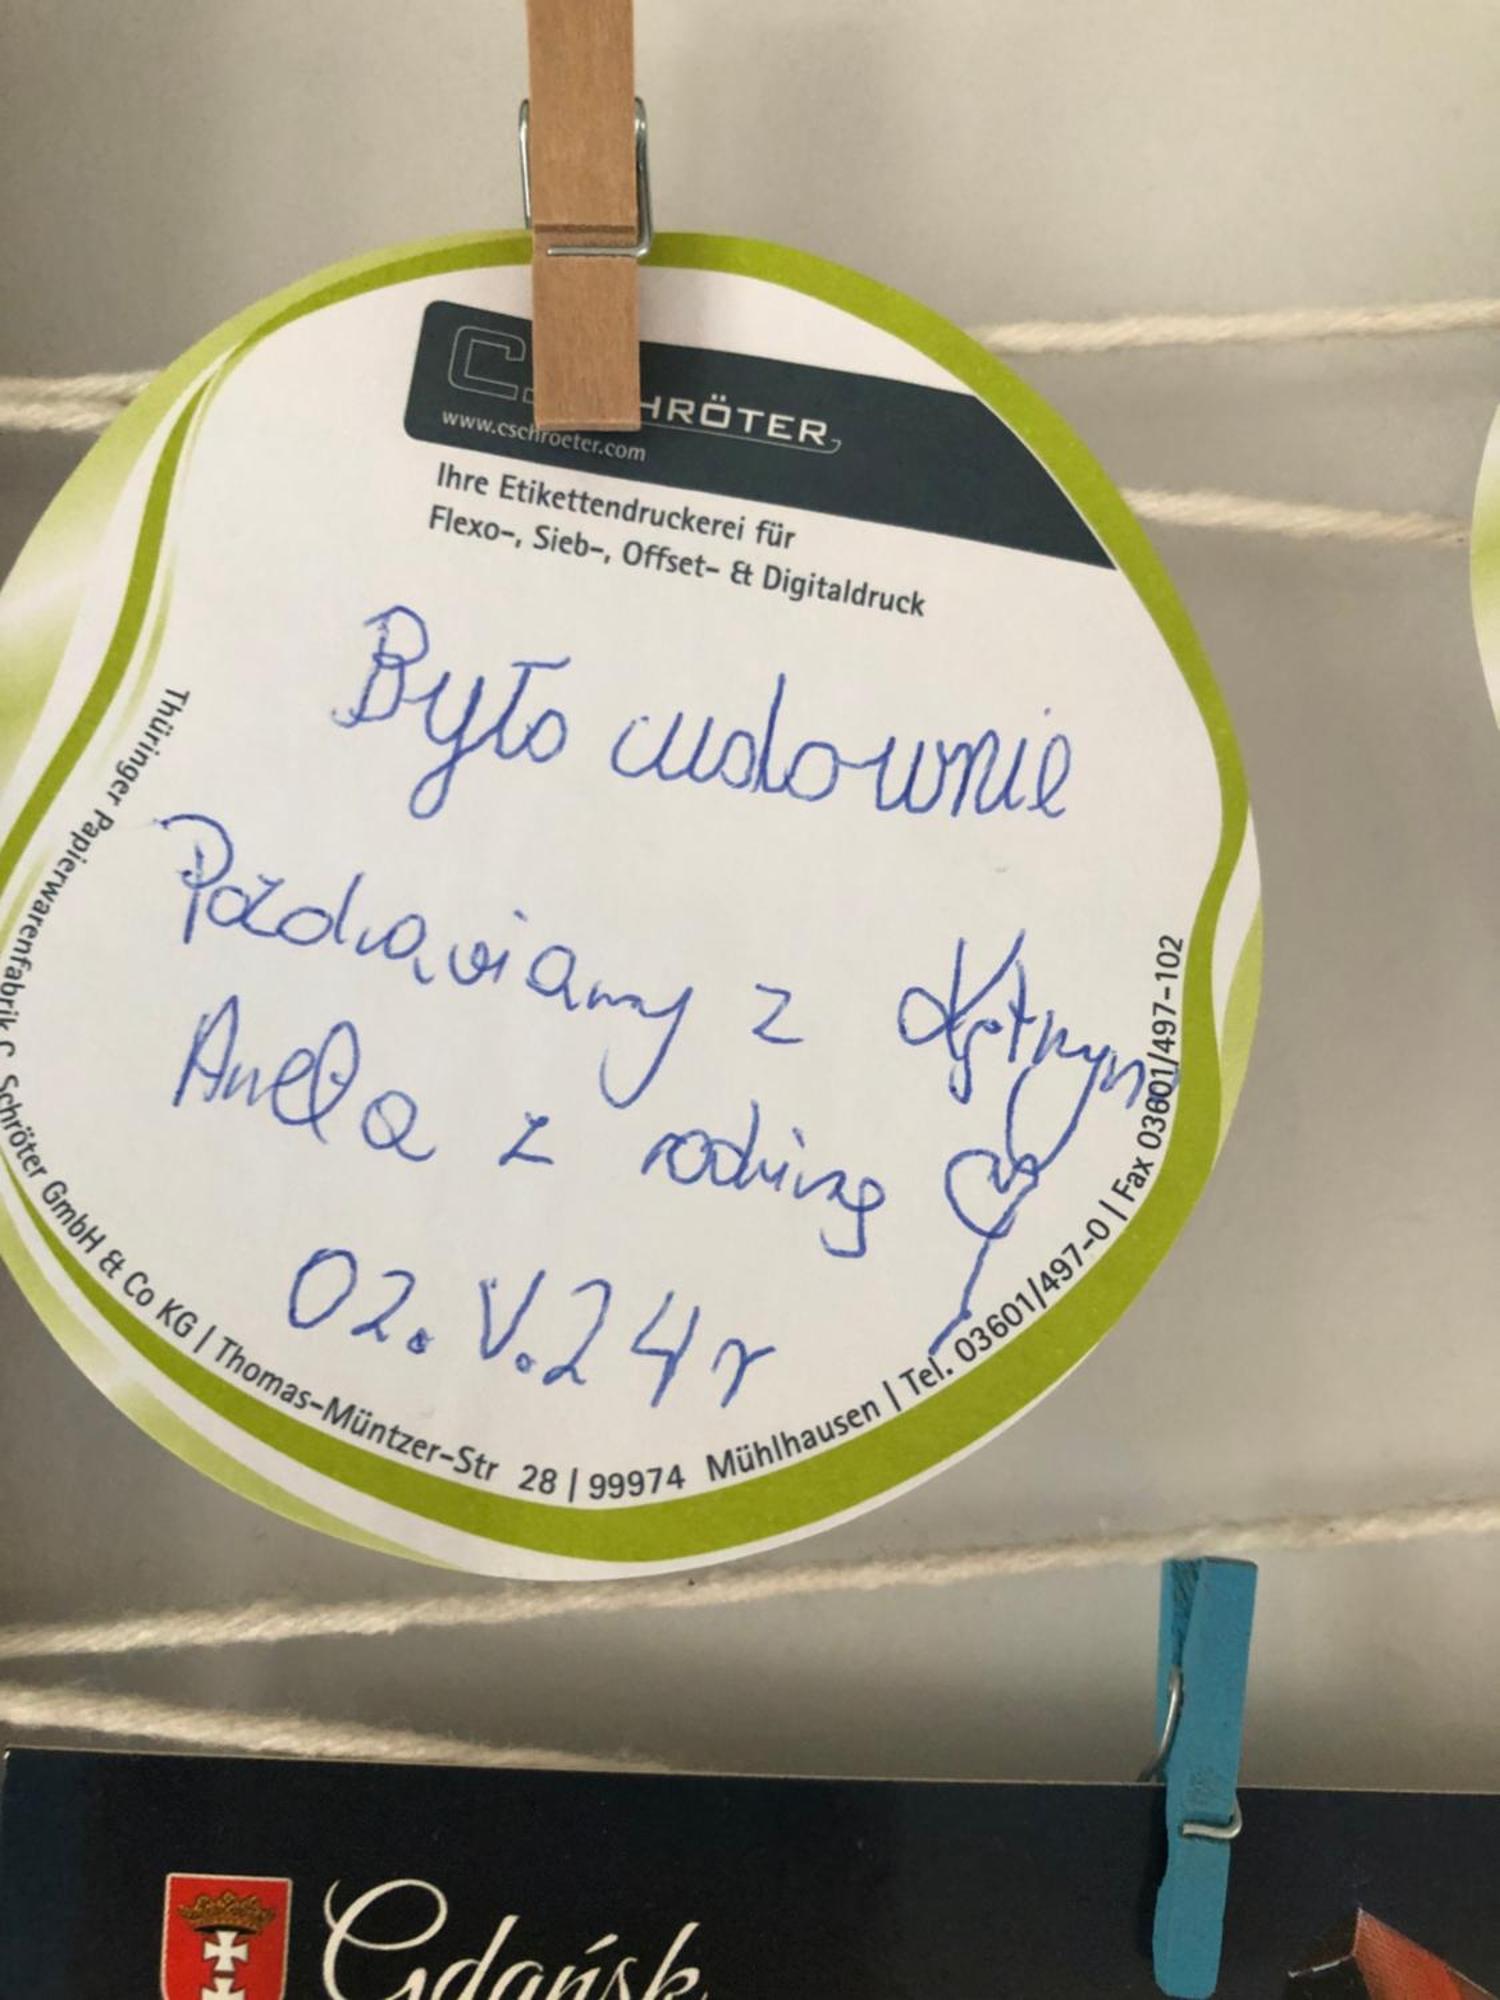 C. HRÖTER
www.cschroeter.com
Ihre Etikettendruckerei für
Flexo-, Sieb-, Offset- & Digitaldruck
Było cudownie
Pozdrawiamy z
Aneta z rodziną
02.V.24r
Thüringer Papierwarenfabrik C. Schröter GmbH & Co KG | Thomas-Müntzer-Str 28 | 99974 Mühlhausen | Tel. 03601/497-0 | Fax 03601/497-102
Gdańsk